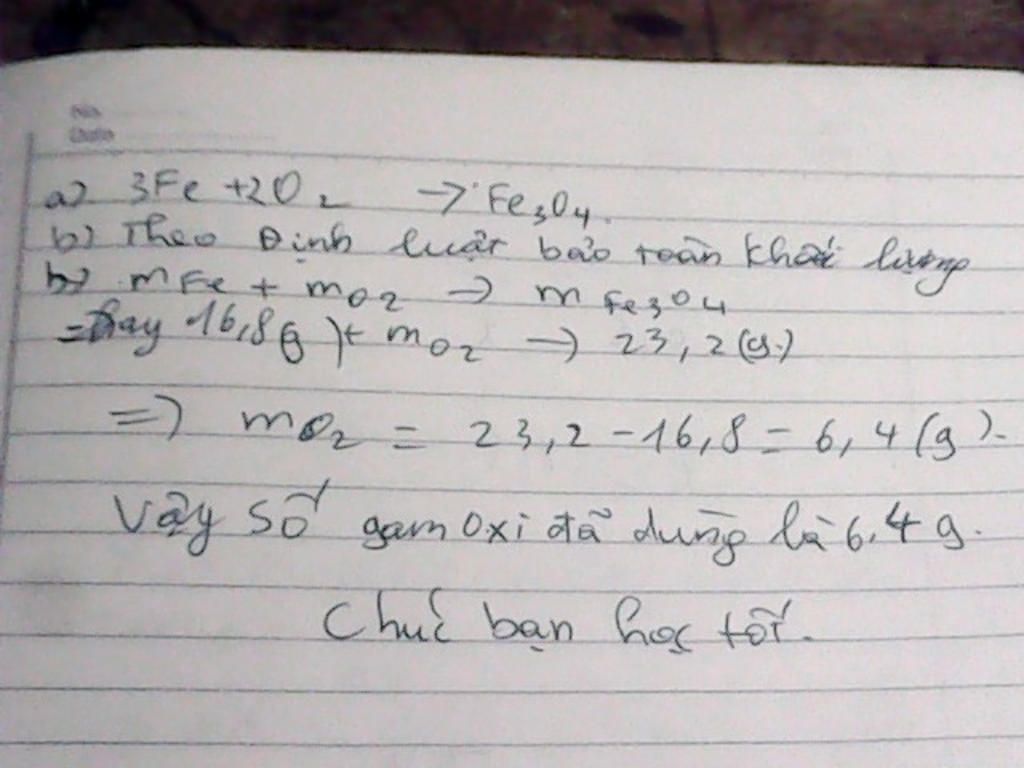 No.
Date
a) 3Fe + 2O₂ → Fe₃O₄.
b) Theo Định luật bảo toàn khối lượng
b) mFe + mO₂ → mFe₃O₄
=hay 16,8g)+ mO₂ → 23,2(g.)
=> mO₂ = 23,2 - 16,8 = 6,4(g).
Vậy số gam Oxi đã dùng là 6,4g.
Chúc bạn học tốt.